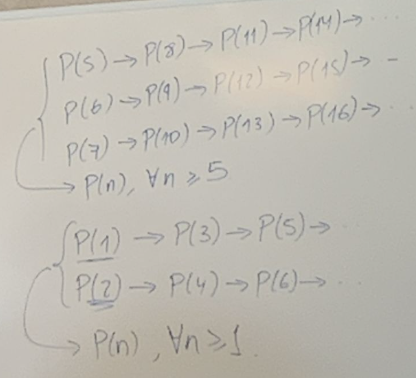 P(5) → P(8) → P(11) → P(14) → ...
P(6) → P(9) → P(12) → P(15) → -
P(7) → P(10) → P(13) → P(16) → ...
→ P(n), ∀n ≥ 5
P(1) → P(3) → P(5) → ...
P(2) → P(4) → P(6) → ...
→ P(n), ∀n ≥ 1.